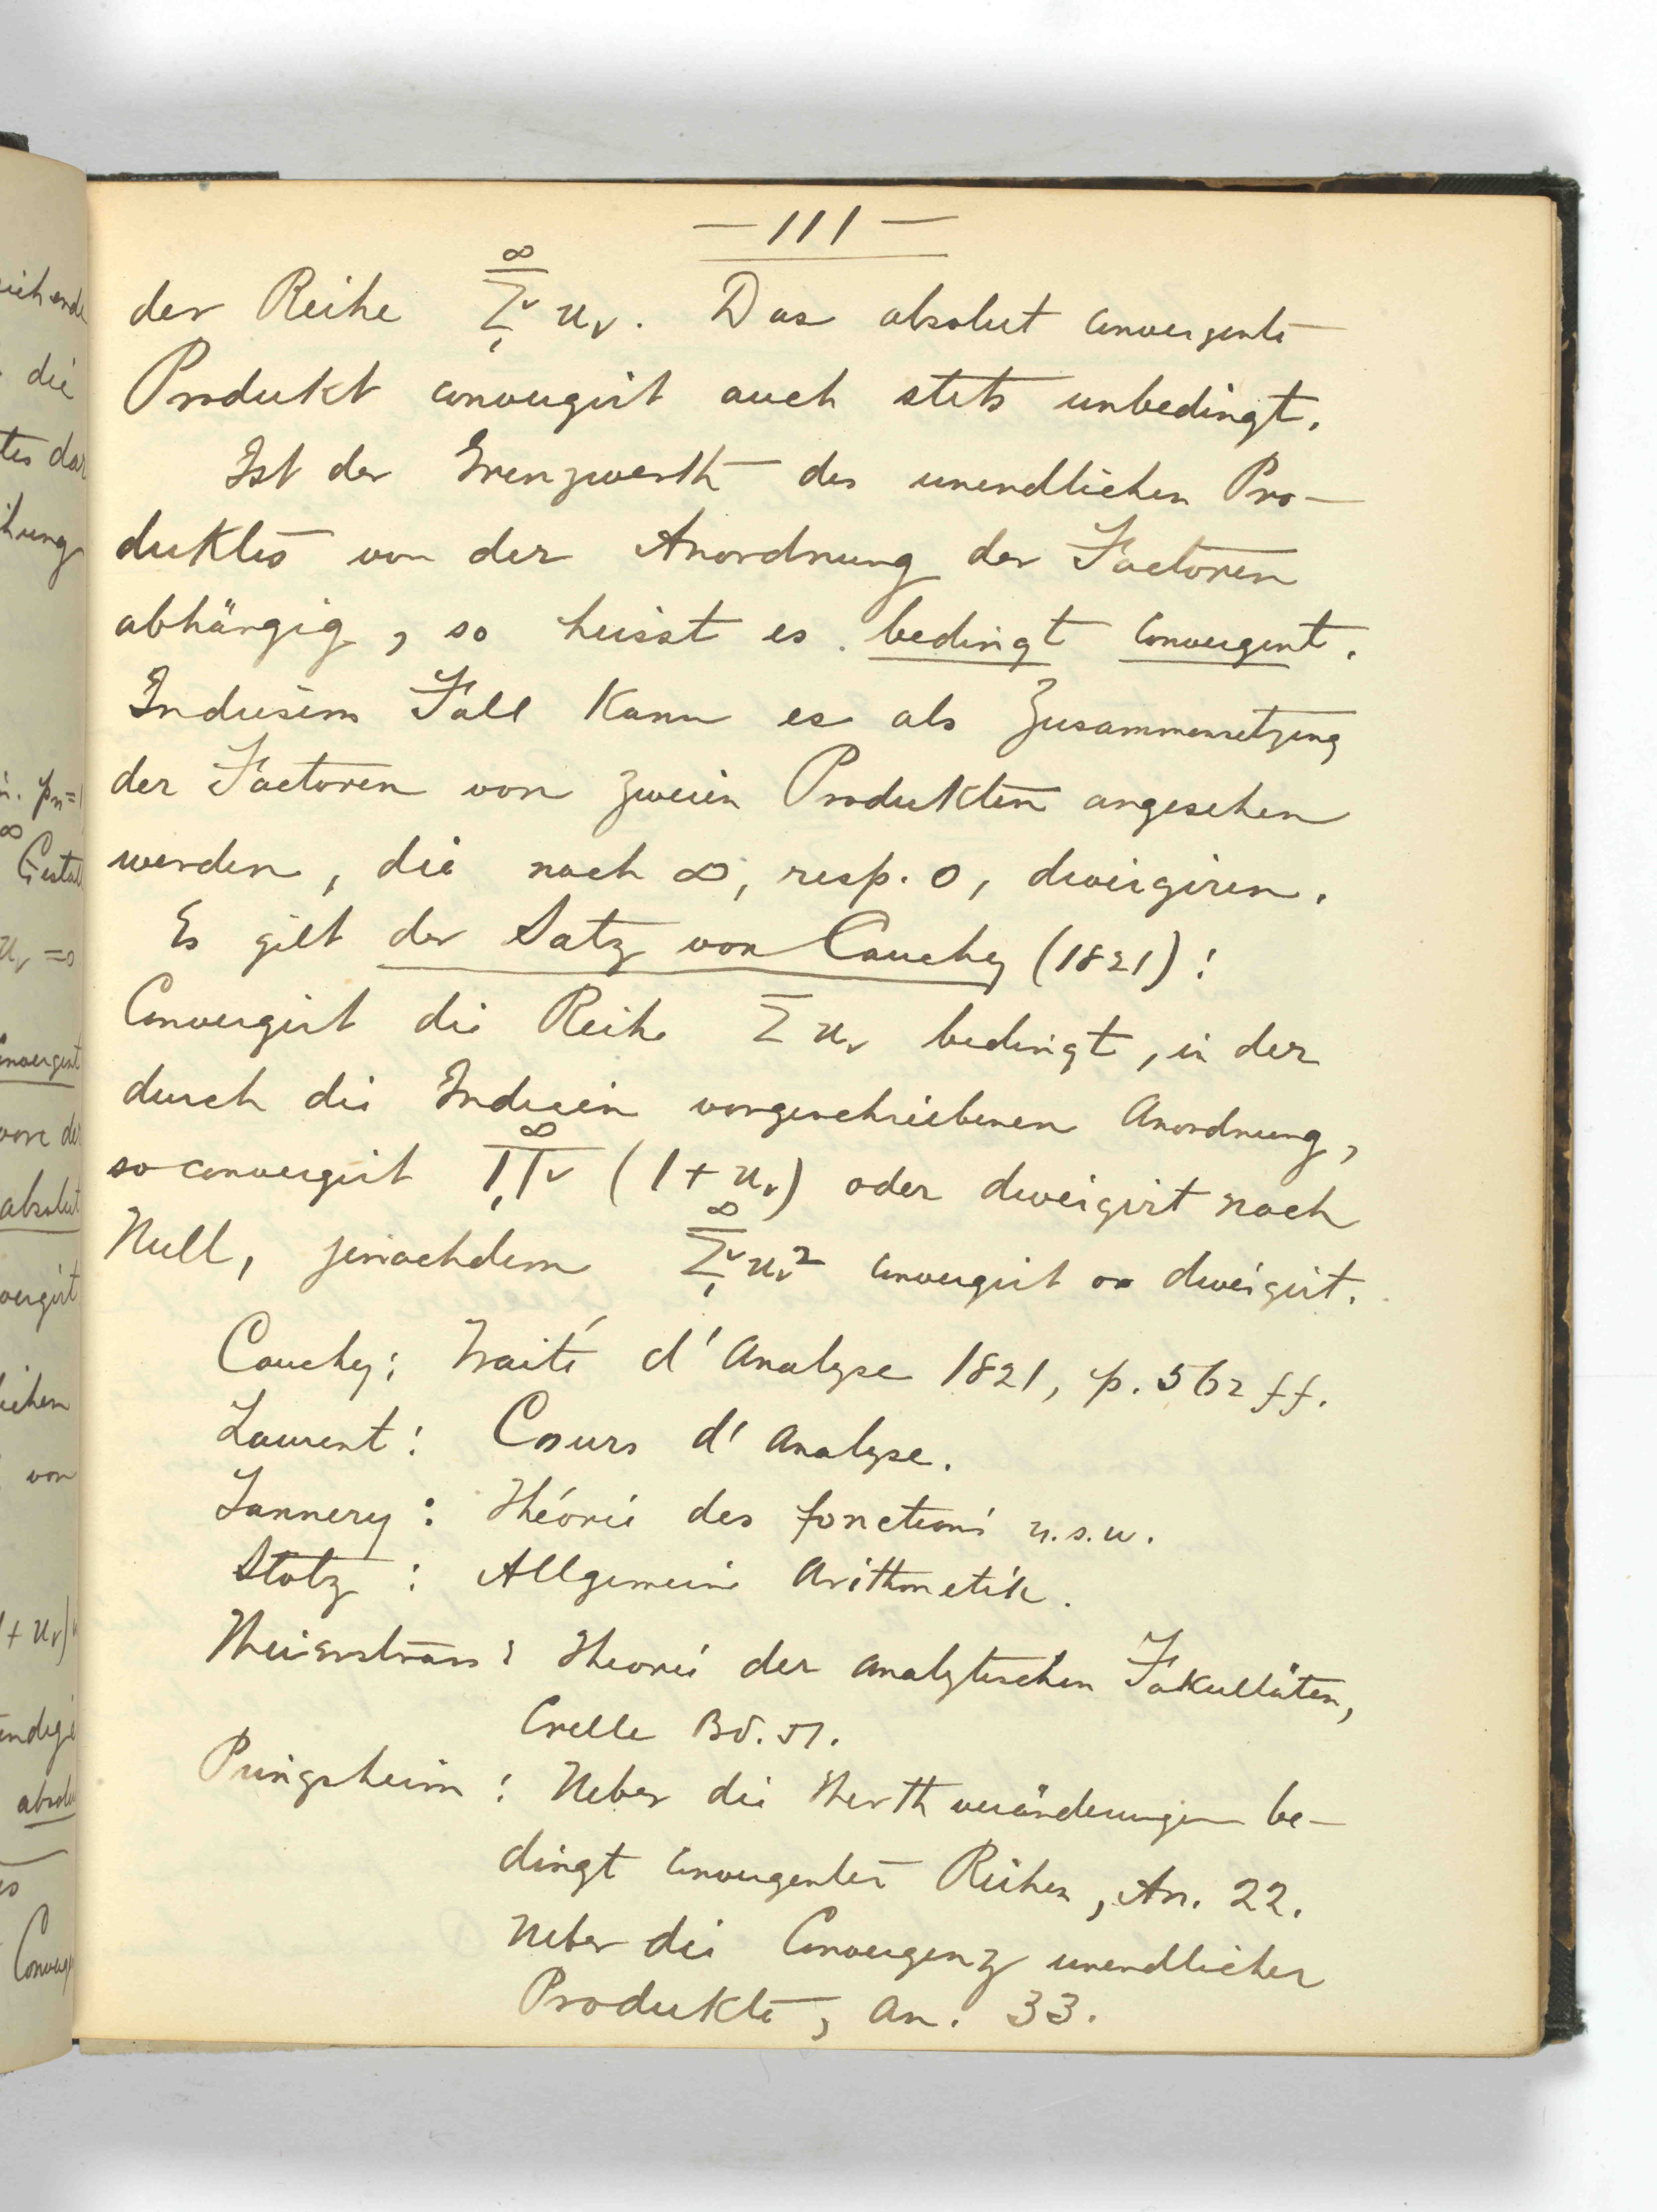 — 111 —
der Reihe ∞ Σν 1 uν. Das absolut convergente
Produkt convergirt auch stets unbedingt.
Ist der Grenzwerth des unendlichen Pro-
duktes von der Anordnung der Factoren
abhängig, so heisst es bedingt convergent.
In diesem Fall kann es als Zusammensetzung
der Factoren von zweien Produkten angesehen
werden, die nach ∞, resp. 0, divergiren.
Es gilt der Satz von Cauchy (1821):
Convergirt die Reihe Σ uν bedingt, in der
durch die Indicien vorgeschriebenen Anordnung,
so convergirt ∞ Πν 1 (1 + uν) oder divergirt nach
Null, jenachdem ∞ Σν 1 uν² convergirt or divergirt.
Cauchy: Traité d'Analyse 1821, p. 562 ff.
Laurent: Cours d'Analyse.
Tannery: Théorie des fonctions u.s.w.
Stolz: Allgemeine Arithmetik.
Weierstrass: Theorie der analytischen Fakultäten,
Crelle Bd. 51.
Pringsheim: Ueber die Werthveränderungen be-
dingt convergenter Reihen, An. 22.
Ueber die Convergenz unendlicher
Produkte, An. 33.